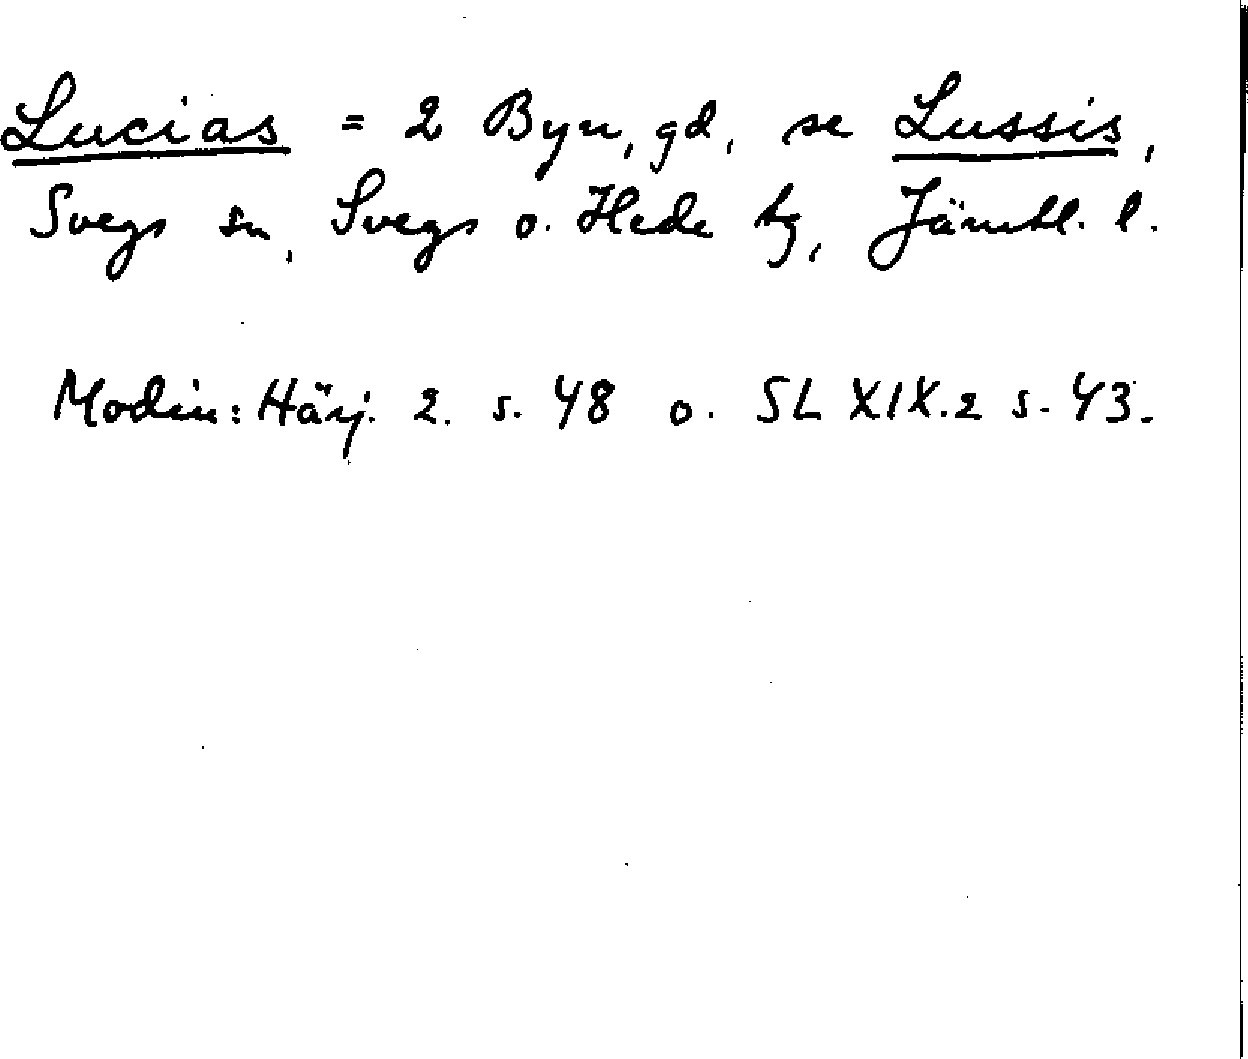 Lucias = 2 Byn, gd, se Lussis,
Svegs sn, Svegs o. Hede tg, Jämtl. l.
Modin: Härj. 2. s. 48 o. SL XIX.2 s. 43.